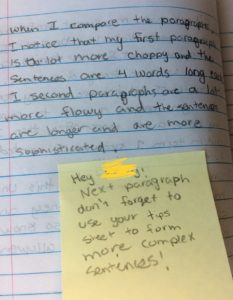 when I compare the paragraphs
I notice that my first paragraph
is far lot more choppy and the
sentences are 4 words long each
I second paragraphs are a lot
more flowy and the sentences
are longer and are more
sophisticated.
Hey
Next paragraph
don't forget to
use your tips
sheet to form
more complex
sentences!